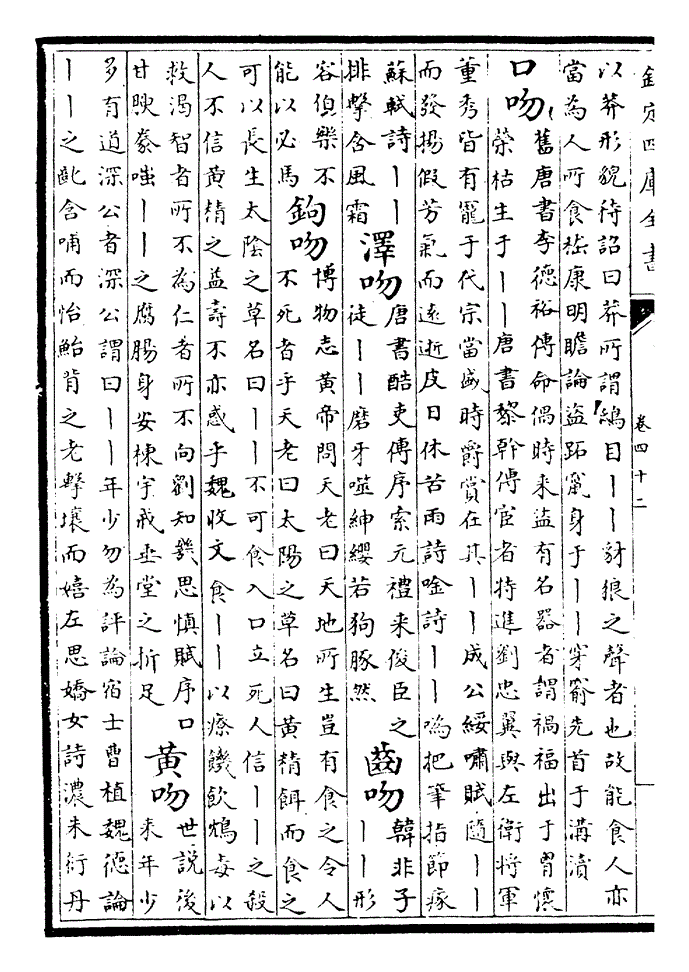 欽定四庫全書
卷四十二
以莽形貌待詔曰莽所謂鴟目丨丨豺狼之聲者也故能食人亦
當為人所食嵇康明瞻論盜跖竄身于丨丨穿窬先首于溝瀆
口吻
舊唐書李德裕傳命偶時来盜有名器者謂禍福出于胷懷
榮枯生于丨丨唐書黎幹傳宦者特進劉忠翼與左衛將軍
董秀皆有寵于代宗當盛時爵賞在其丨丨成公綏嘯賦隨丨丨
而發揚假芳氣而遠逝皮日休苦雨詩唫詩丨丨嗚把筆指節瘃
蘇軾詩丨丨
排擊含風霜
澤吻
唐書酷吏傳序索元禮来俊臣之
徒丨丨磨牙噬紳纓若狗豚然
齒吻
韓非子
丨丨形
容伯樂不
能以必馬
鉤吻
博物志黄帝問天老曰天地所生豈有食之令人
不死者乎天老曰太陽之草名曰黄精餌而食之
可以長生太陰之草名曰丨丨不可食入口立死人信丨丨之殺
人不信黄精之益壽不亦惑乎魏收文食丨丨以療饑飲鴆毒以
救渴智者所不為仁者所不向劉知幾思慎賦序口
甘腴豢嗤丨丨之腐腸身安棟宇戒垂堂之折足
黄吻
世說後
来年少
多有道深公者深公謂曰丨丨年少勿為評論宿士曹植魏德論
丨丨之齔含哺而怡鮐背之老擊壤而嬉左思嬌女詩濃朱衍丹